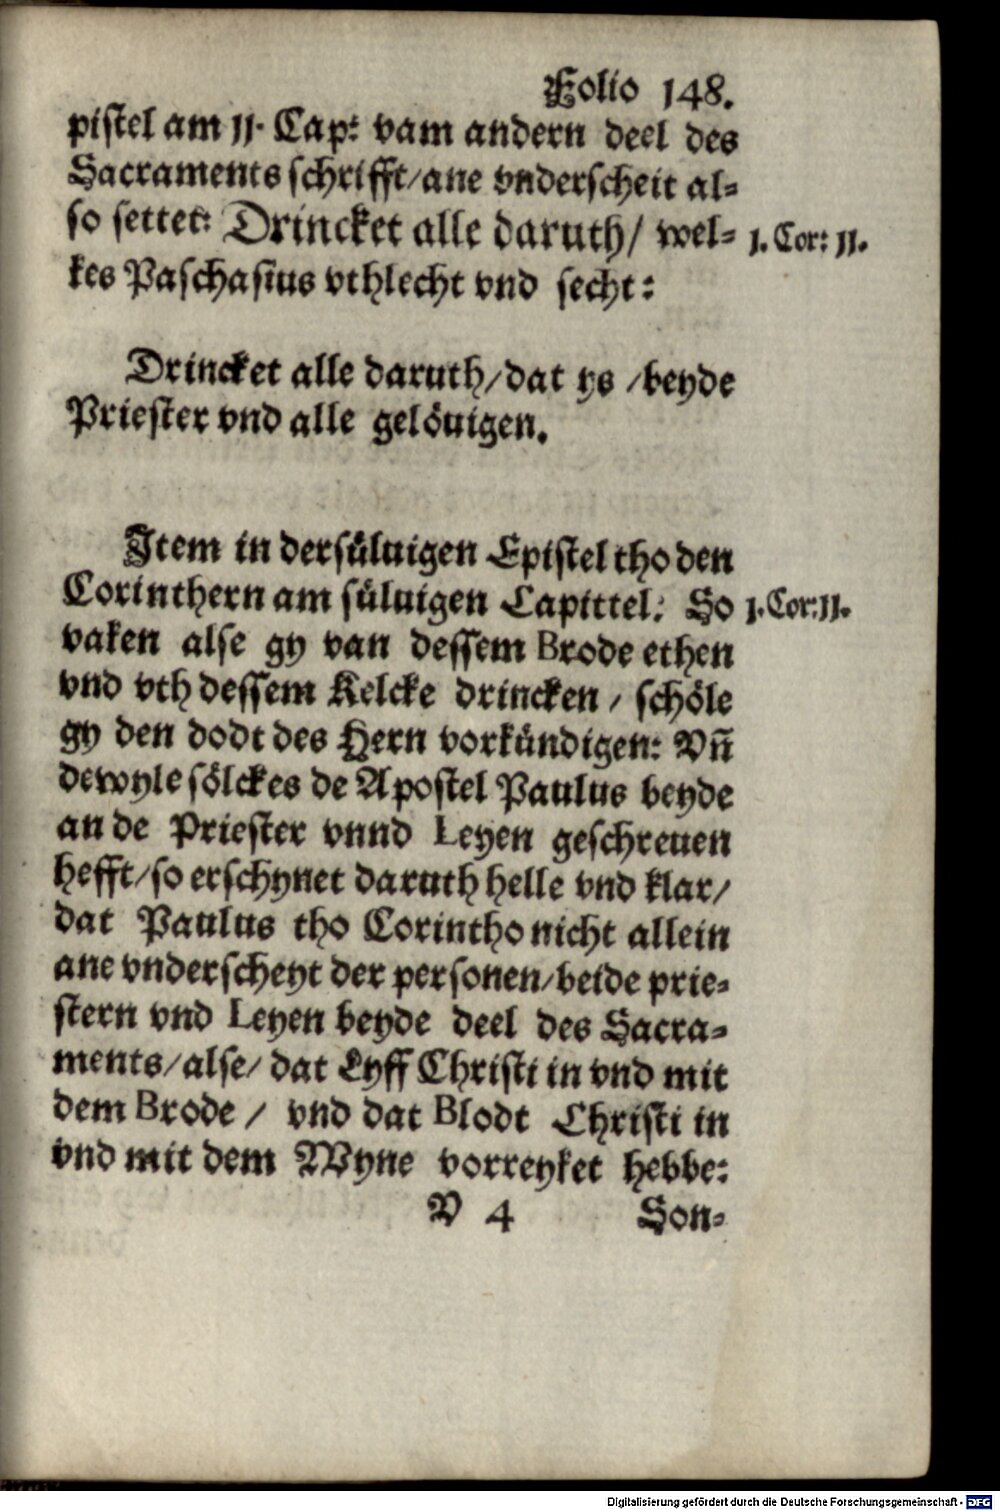 Folio 148.
pistel am 11. Cap: vam andern deel des
Sacraments schrifft/ane vnderscheit al-
so settet: Drincket alle daruth/ wel-
1. Cor: 11.
kes Paschasius vthlecht vnd secht:
Drincket alle daruth/dat ys /beyde
Priester vnd alle gelöuigen.
Item in dersüluigen Epistel tho den
Corinthern am süluigen Capittel: So
1. Cor: 11.
vaken alse gy van dessem Brode ethen
vnd vth dessem Kelcke drincken / schöle
gy den dodt des Hern vorkündigen: Vn̄
dewyle sölckes de Apostel Paulus beyde
an de Priester vnnd Leyen geschreuen
hefft/so erschynet daruth helle vnd klar/
dat Paulus tho Corintho nicht allein
ane vnderscheyt der personen/beide prie-
stern vnd Leyen beyde deel des Sacra-
ments/alse/ dat Lyff Christi in vnd mit
dem Brode / vnd dat Blodt Christi in
vnd mit dem Wyne vorreyket hebbe:
V 4 Son-
Digitalisierung gefördert durch die Deutsche Forschungsgemeinschaft - DFG